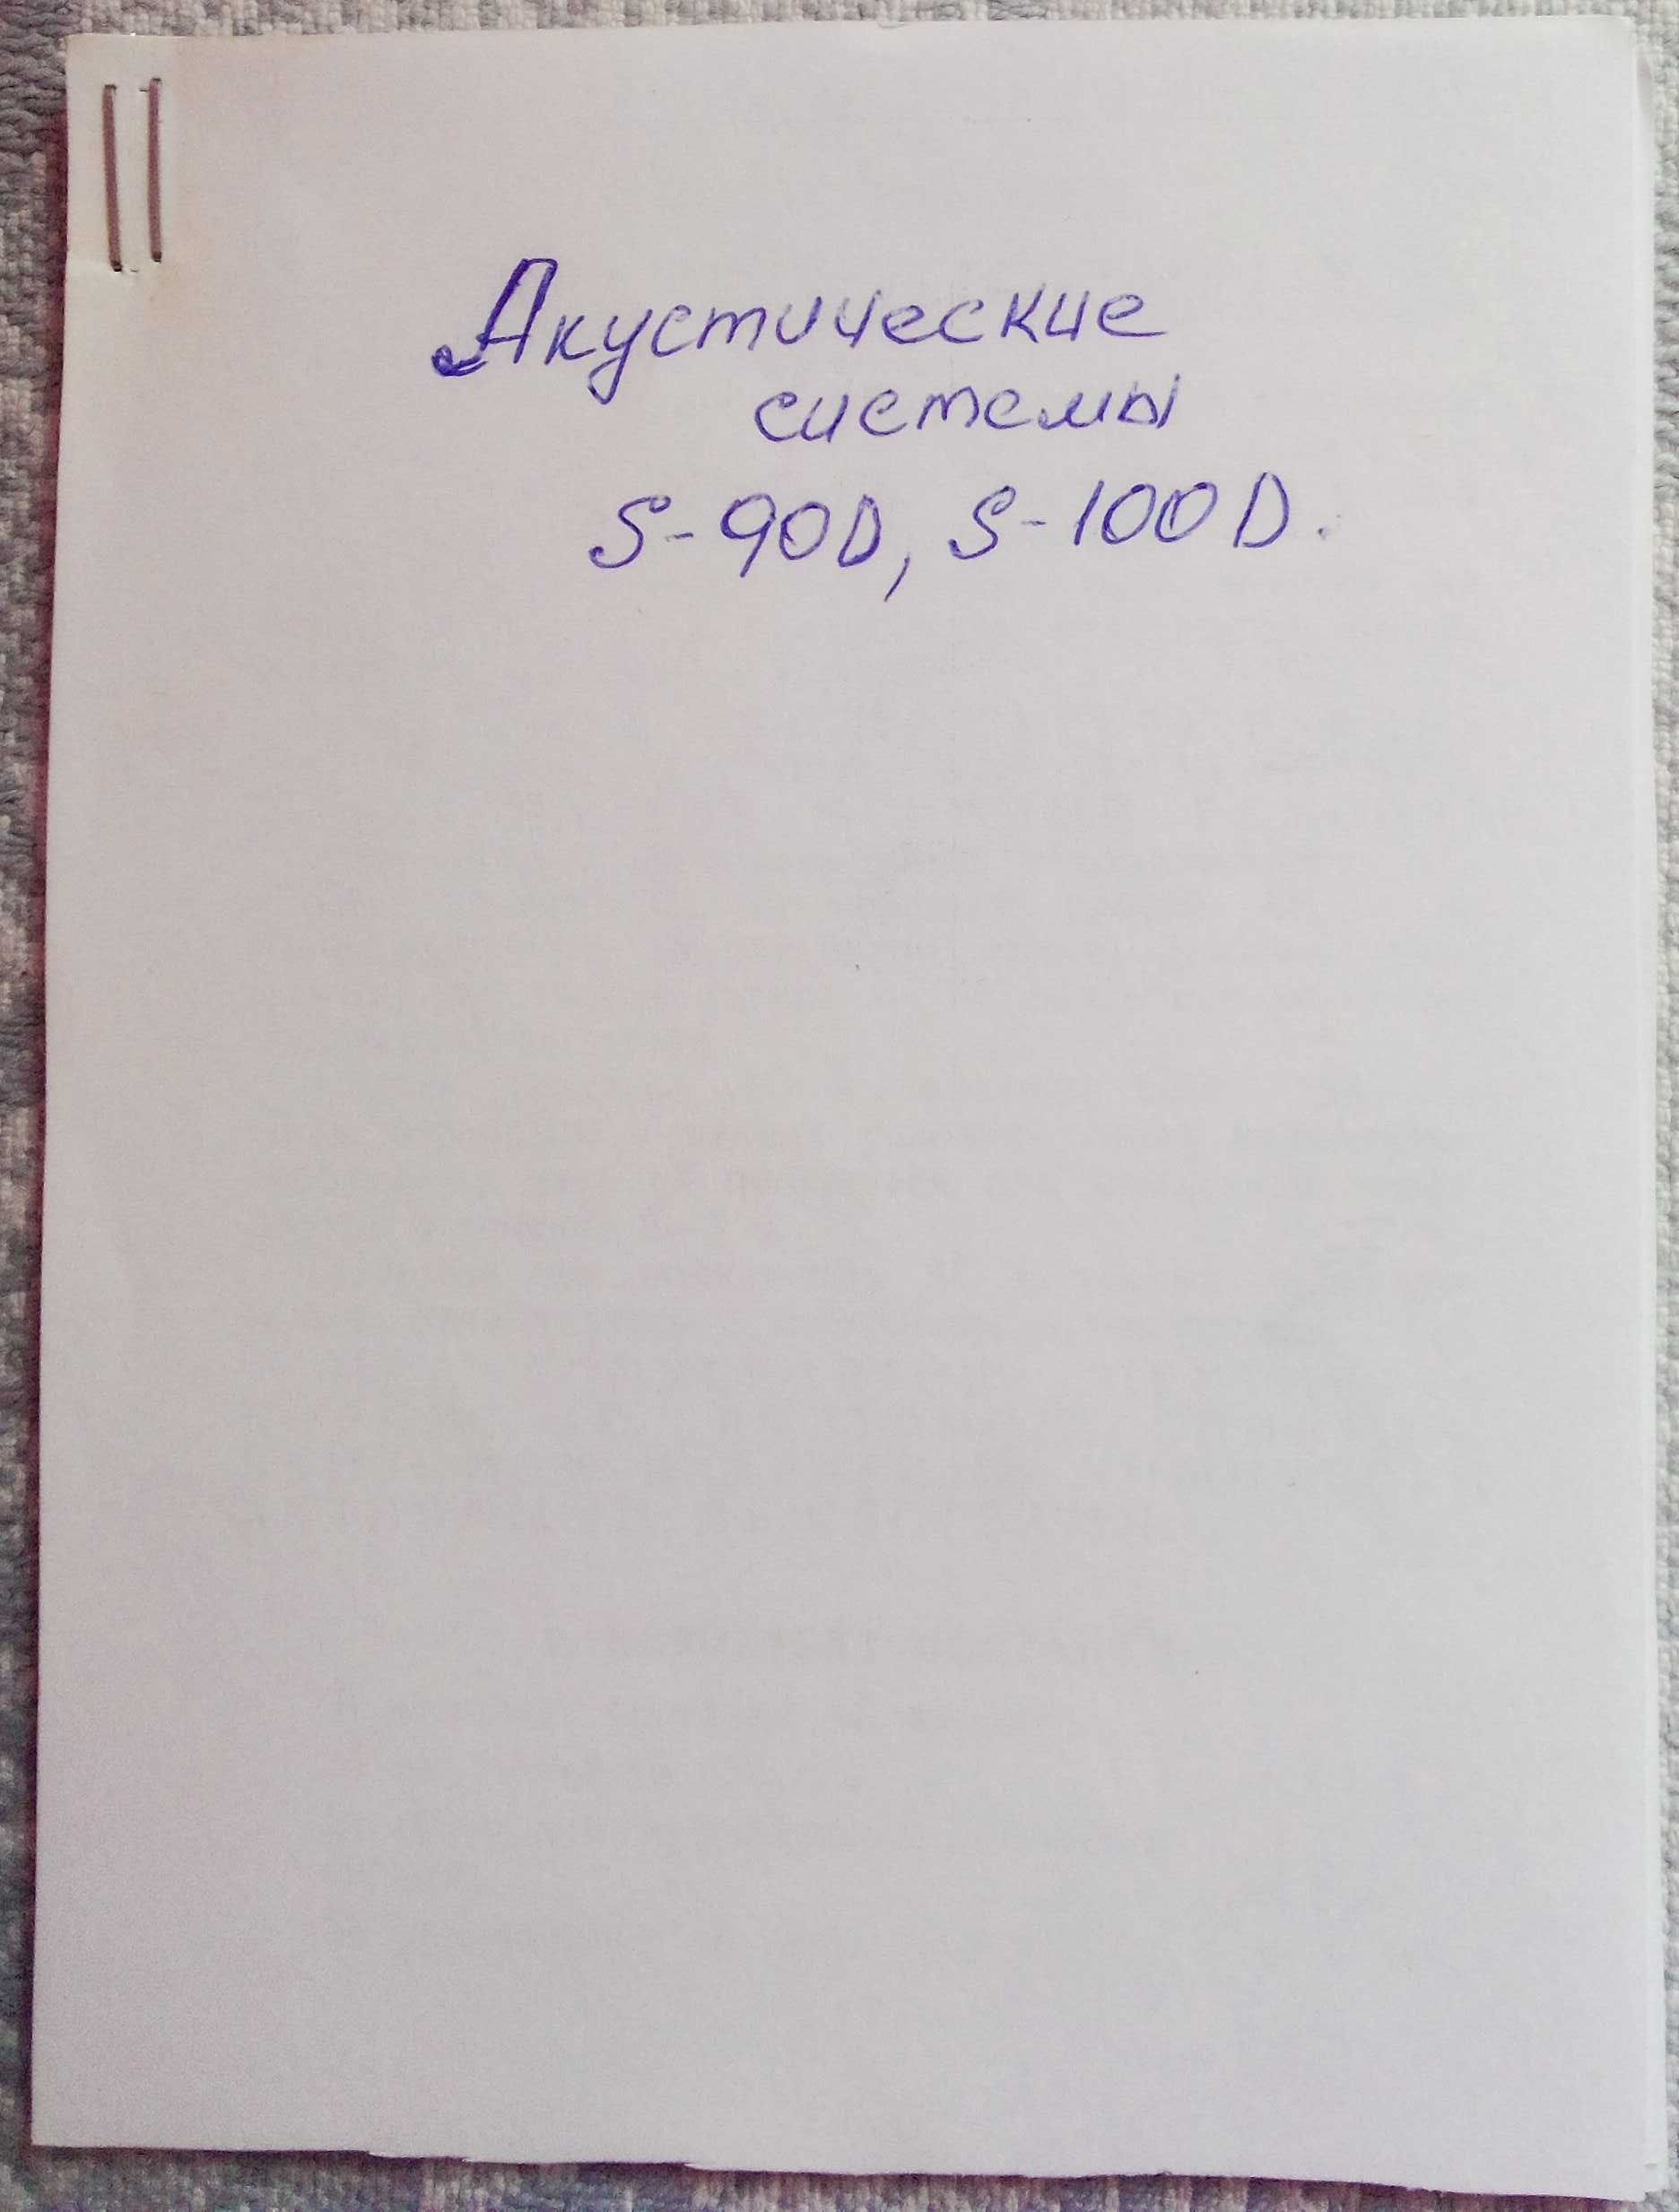 Акустические
системы
S-90D, S-100D.